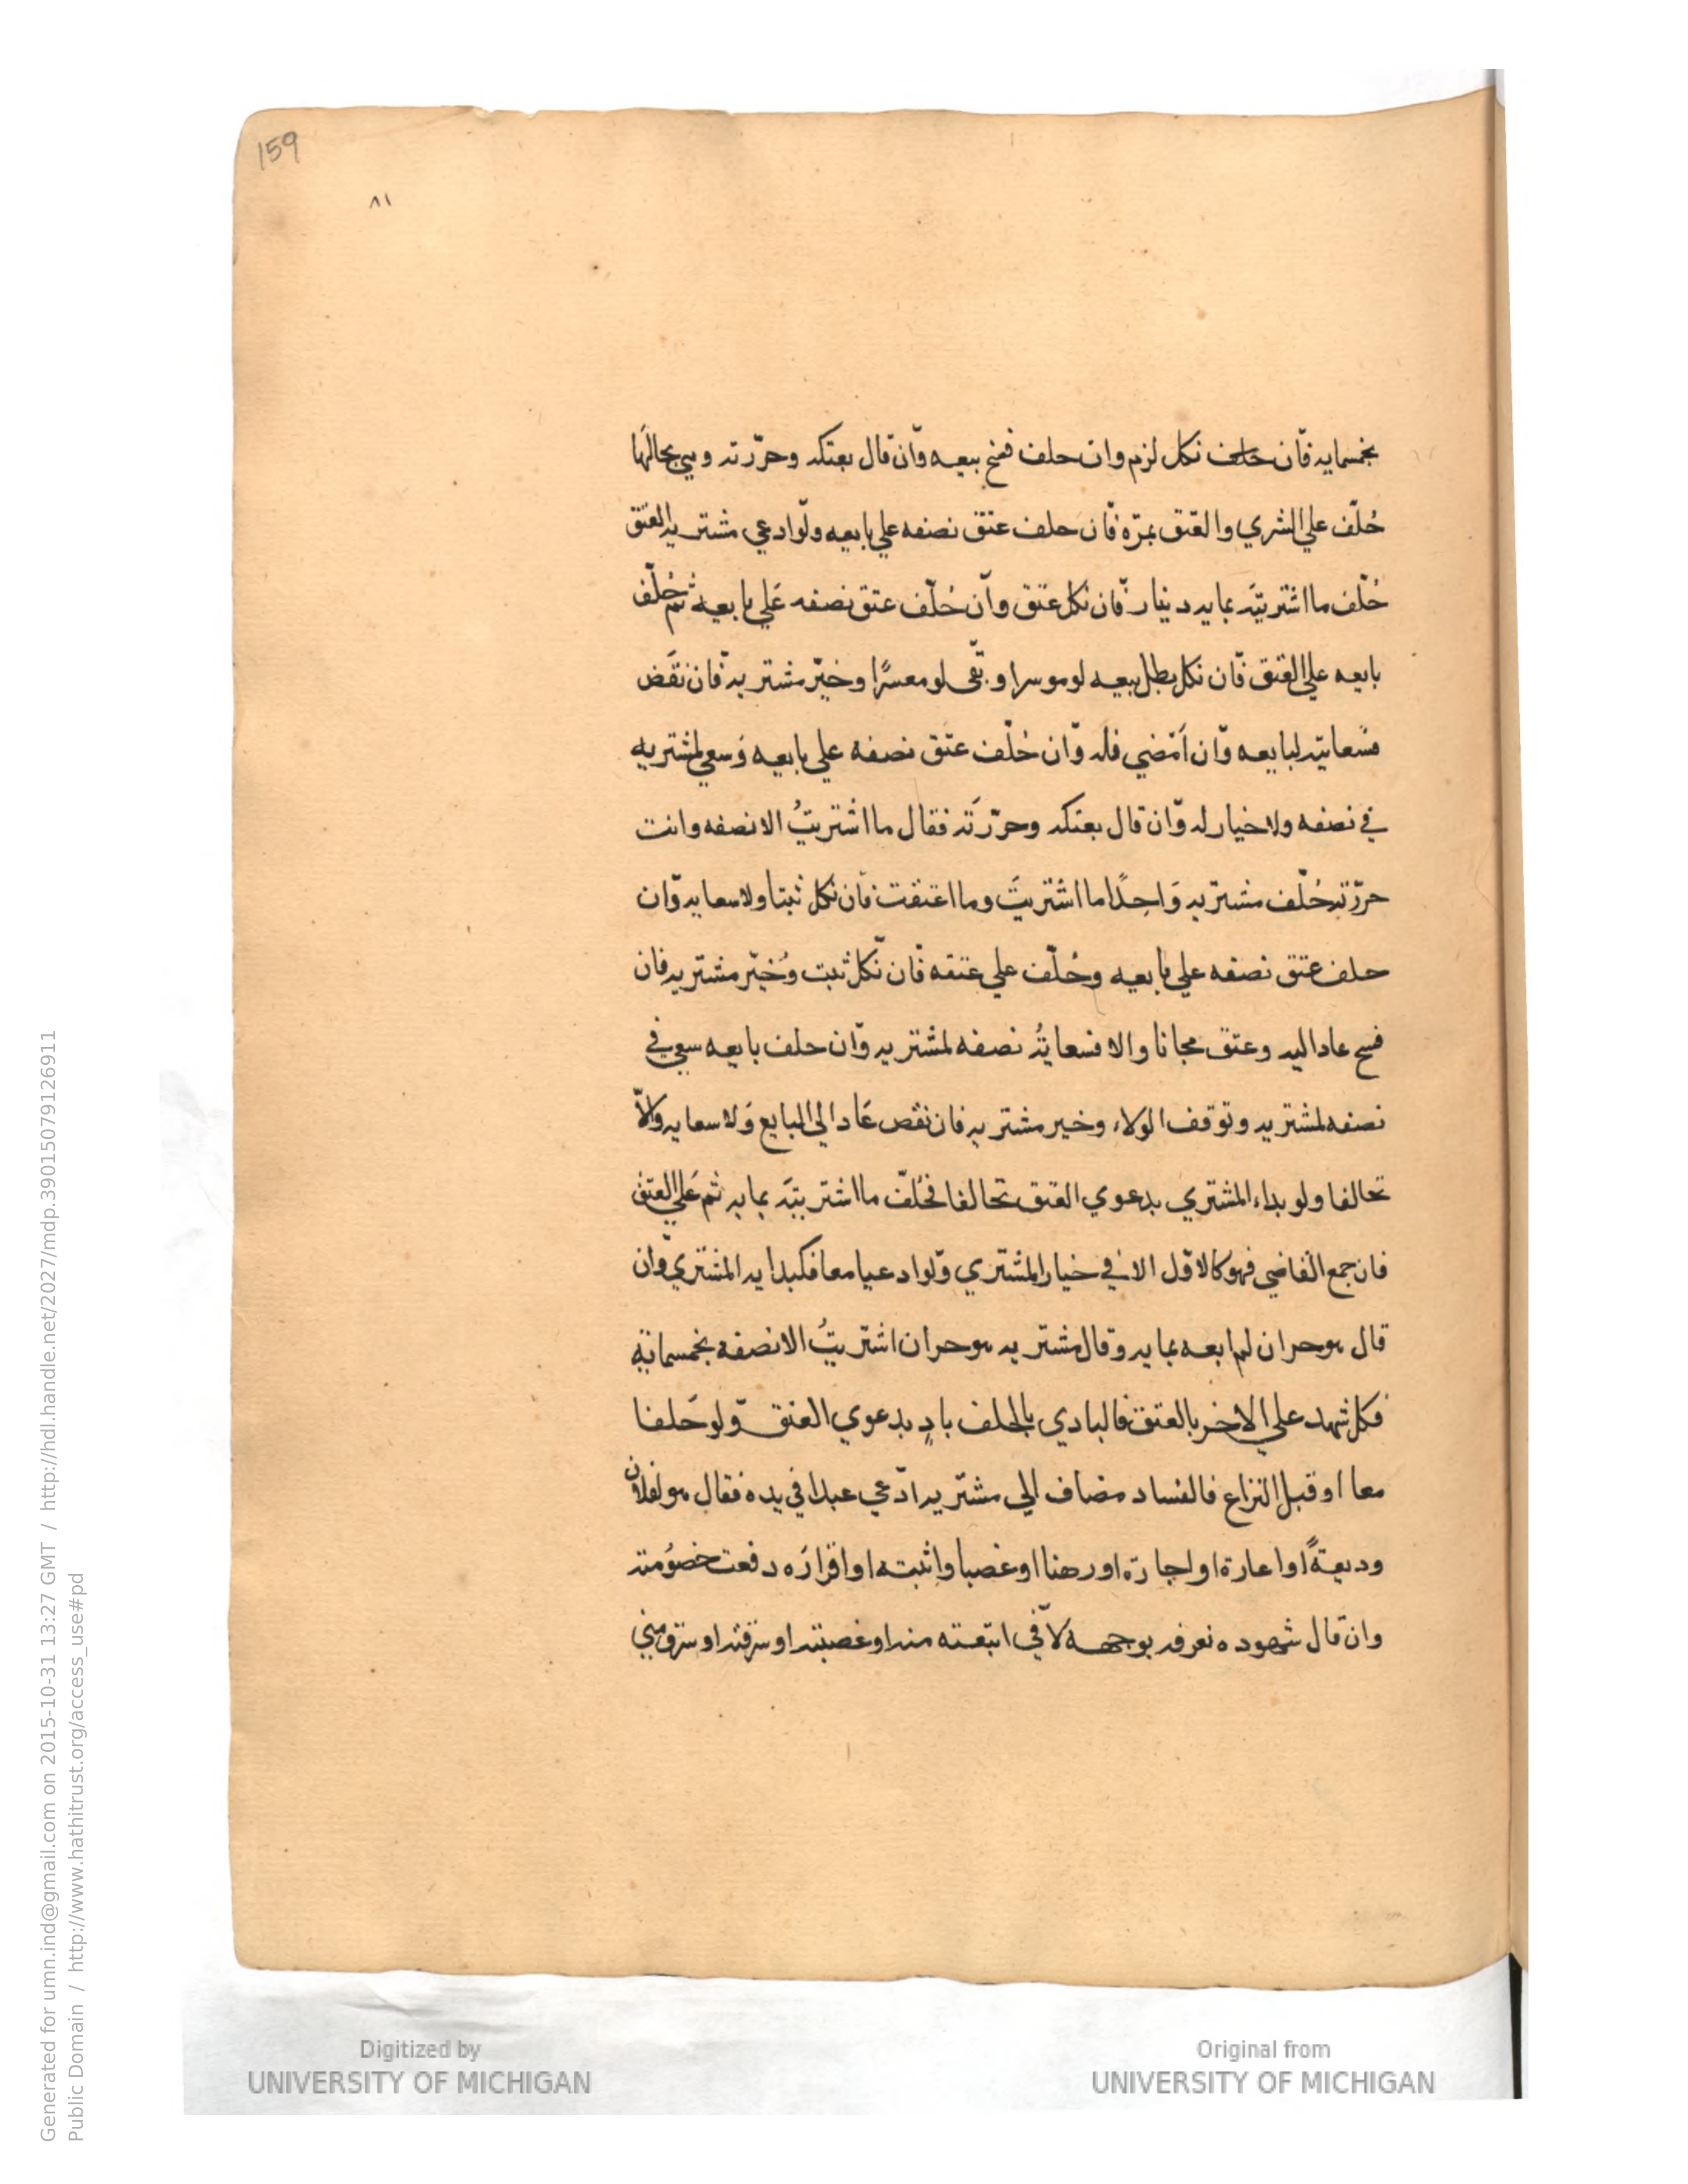 159
٨١
بخمسمايه فّان حلف نكل لزم وان حلف فسخ بيعه وّان قال بعتكه وحرّرته وهي بحالها
حُلّف علي الشري والعتق بمرّه فّان حلف عتق نصفه علي بايعه ولّو ادعي مشتريه العتق
حُلّف ما اشتريتَه بمايه دينار فّان نكل عتق وآن حُلّف عتق نصفه عَلي بايعه ثم حُلّف
بايعه علي العتق فّان نكل بطل بيعه لو موسرا وبقي لو معسرًا وخيّر مشتريه فّان نقَض
فسعايته لبايعه وّان اَمْضي فله وّان حُلّف عتق نصفه علي بايعه وَسعي لمشتريه
في نصفه ولا خيار له وّان قال بعتكه وحرّرتَه فقال ما اشتريتُ الا نصفه وانت
حرّرته حُلّف مشتريه وَاحِدًا ما اشتريتَ وما اعتقت فّان نكل ثبتا ولا سعايه وّان
حلف عتق نصفه علي بايعه وحُلّف علي عتقه فّان نّكل ثبت وُخيّر مشتريه فان
فسخ عاد اليه وعتق مجانا والا فسعايتُه نصفه لمشتريه وّان حلف بايعه سعي في
نصفه لمشتريه وتوقف الولاء وخير مشتريه فان نقض عَاد الي البايع وَلا سعايه والّا
تحالفا ولو بداء المشتري بدعوي العتق تحالفا فحُلّف ما اشتريتَه بمايه ثم عَلي العتق
فان جمع القاضي فهو كالاوّل الا في خيار المشتري وّلو ادعيا معا فكبدايه المشتري وّان
قال هو حر ان لم ابعه بمايه وقال مشتريه هو حر ان اشتريتُ الا نصفه بخمسمائة
فكل شهد علي الاخر بالعتق فالبادي بالحلف بادٍ بدعوي العتق وّلو حَلفا
معا او قبل النزاع فالفساد مضاف الي مشتريه ادّعي عبدا في يده فقال هو لفلان
وديعةً او اعارة او اجارة او رهنا او غصبا واثبته او اقرارَه دفعت خصوُمته
وان قال شهوده نعرفه بوجهه لا في ابتعته منه او غصبته او سرقته او سرق مني
Generated for umn.ind@gmail.com on 2015-10-31 13:27 GMT / http://hdl.handle.net/2027/mdp.39015079126911
Public Domain / http://www.hathitrust.org/access_use#pd
Digitized by
UNIVERSITY OF MICHIGAN
Original from
UNIVERSITY OF MICHIGAN